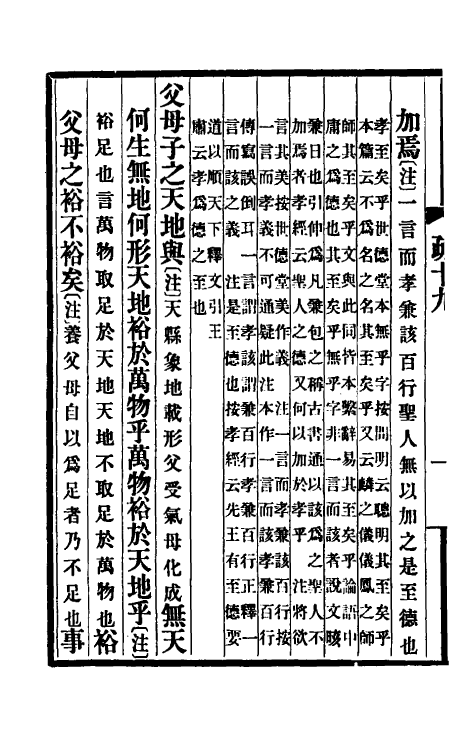 疏十九
一
加焉〔注〕一言而孝兼該百行聖人無以加之是至德也
孝至矣乎世德堂本無乎字按問明云聰明其至矣乎
本篇云不爲名之名其至矣乎又云麟之儀儀鳳之師
師其至矣乎文與此同皆本繫辭易其至矣乎論語中
庸之爲德也其至矣乎無乎字非一言而該者說文晐
兼日也引伸爲凡兼包之稱古書通以該爲之聖人不
加焉者孝經云聖人之德又何以加於孝乎　注將欲
言其美按世德堂美作義　注一言而孝兼該百行按
一言而孝義不可通疑此注本作一言而該孝兼百行
傳寫誤倒耳一言謂孝該謂兼百行孝兼百行正釋一
言而該之義　注是至德也按孝經云先王有至德要
道以順天下釋文引王
肅云孝爲德之至也
父母子之天地與〔注〕天縣象地載形父受氣母化成無天
何生無地何形天地裕於萬物乎萬物裕於天地乎〔注〕
裕足也言萬物取足於天地天地不取足於萬物也裕
父母之裕不裕矣〔注〕養父母自以爲足者乃不足也事